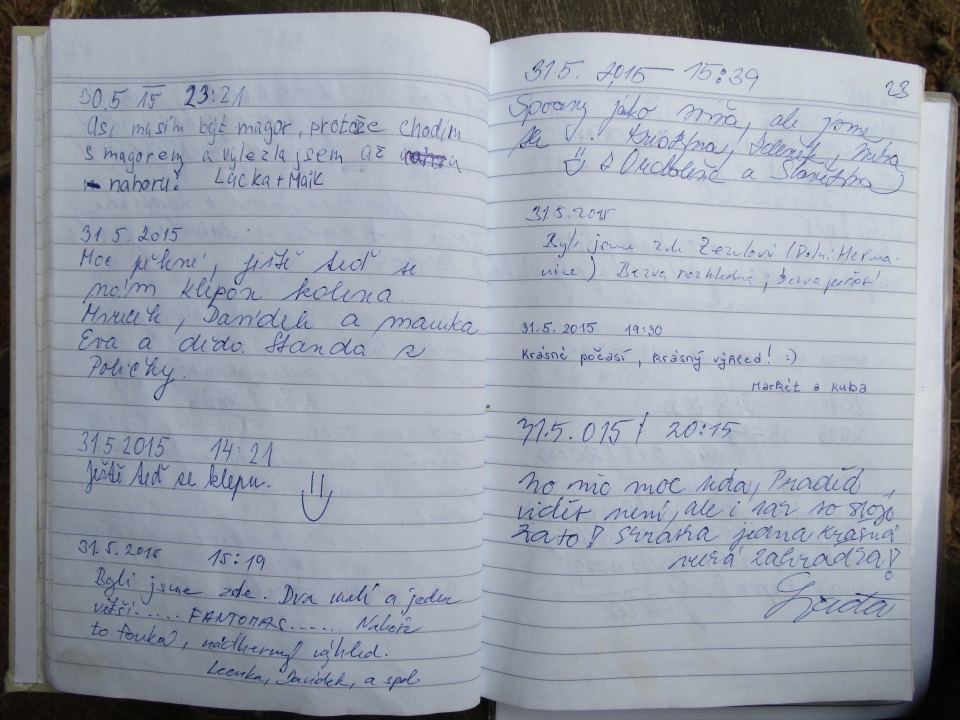 30.5. 15 23:21
Asi musím být magor, protože chodím
s magorem a vylezla jsem až
nahoru! Lucka + Majk
31.5.2015
Moc pěkné, ještě teď se
nám klepou kolena.
Davídek a mamka
Eva a děda Standa z
Poličky.
31.5.2015 14:21
Ještě teď se klepu.
31.5.2015 15:19
Byli jsme zde. Dva malí a jeden
větší..... FANTOMAS...... Nahoře
to fouká, nádherný výhled.
Leonka, Davídek, a spol.
23
31.5. 2015 15:39
jako sviňa, ale jsme
Zdeněk,
a
31.5.2015
Byli jsme zde Zezulovi (Dolní Heřma-
nice). Bezva rozhledna, bezva počasí.
31.5.2015 19:30
Krásné počasí, krásný výhled! :)
Markét a Kuba
31.5.015/ 20:15
No nic moc, Praděd,
vidět není, ale i tak to stojí
zato! Stráňa jedna krásná
zahrádka!